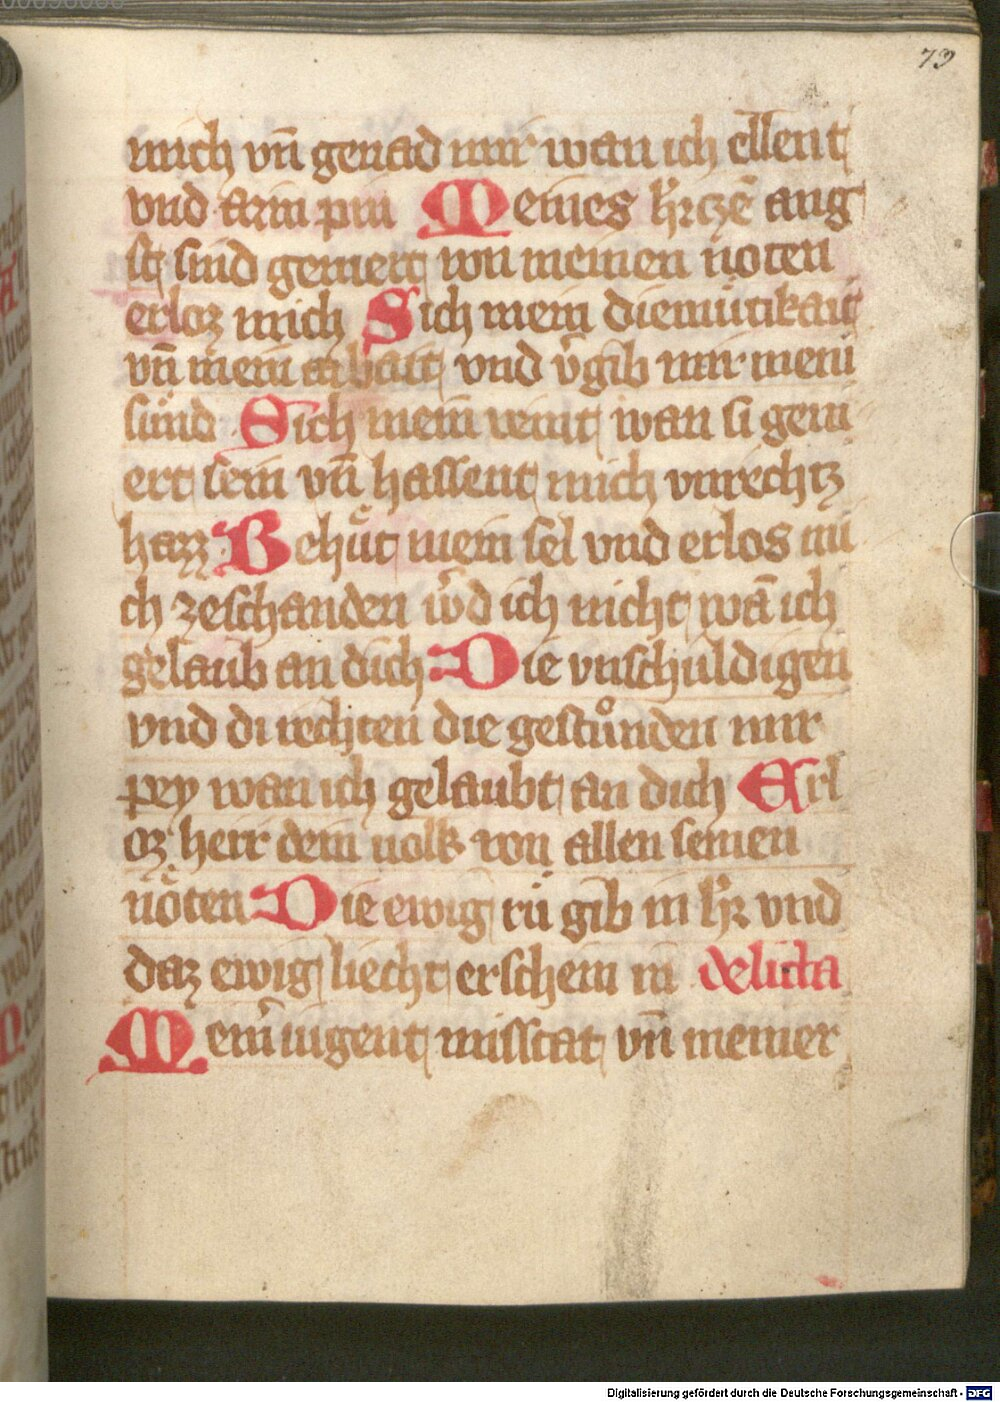 73
mich vn̄ genad mir wan ich ellent
vnd arm pin Meines h̓czē ang
st sind gemert von meinen nöten
erloz mich Sich mein diemütikait
vn̄ mein arbait vnd v̓gib mir mein
sünd Sich mein veint wan si gem
ert sein vn̄ hassent mich vnrechtz
hazz Behüt mein sel vnd erlos mi
ch zeschanden w̓d ich nicht wā ich
gelaub an dich Die vnschuldigen
vnd di rechten die gestůnden mir
pey wan ich gelaubt an dich Erl
oz herr dein volk von allen seinen
nöten Die ewig rü gib in h̓r vnd
daz ewig liecht erschein in delicta
Mein̓ iugent misstat vn̄ meiner
Digitalisierung gefördert durch die Deutsche Forschungsgemeinschaft - DFG